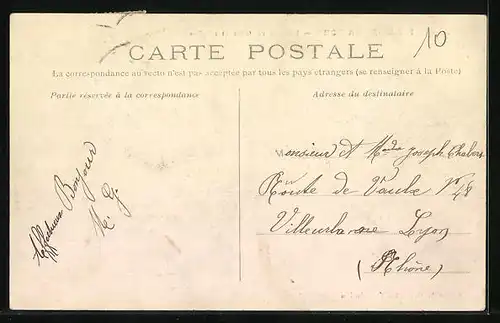 10
CARTE POSTALE
La correspondance au recto n'est pas acceptée par tous les pays étrangers (se renseigner à la Poste)
Partie réservée à la correspondance
Adresse du destinataire
Bonjour
Monsieur et Madame Joseph
Route de Vaulx N° 48
Villeurbanne Lyon
(Rhône)